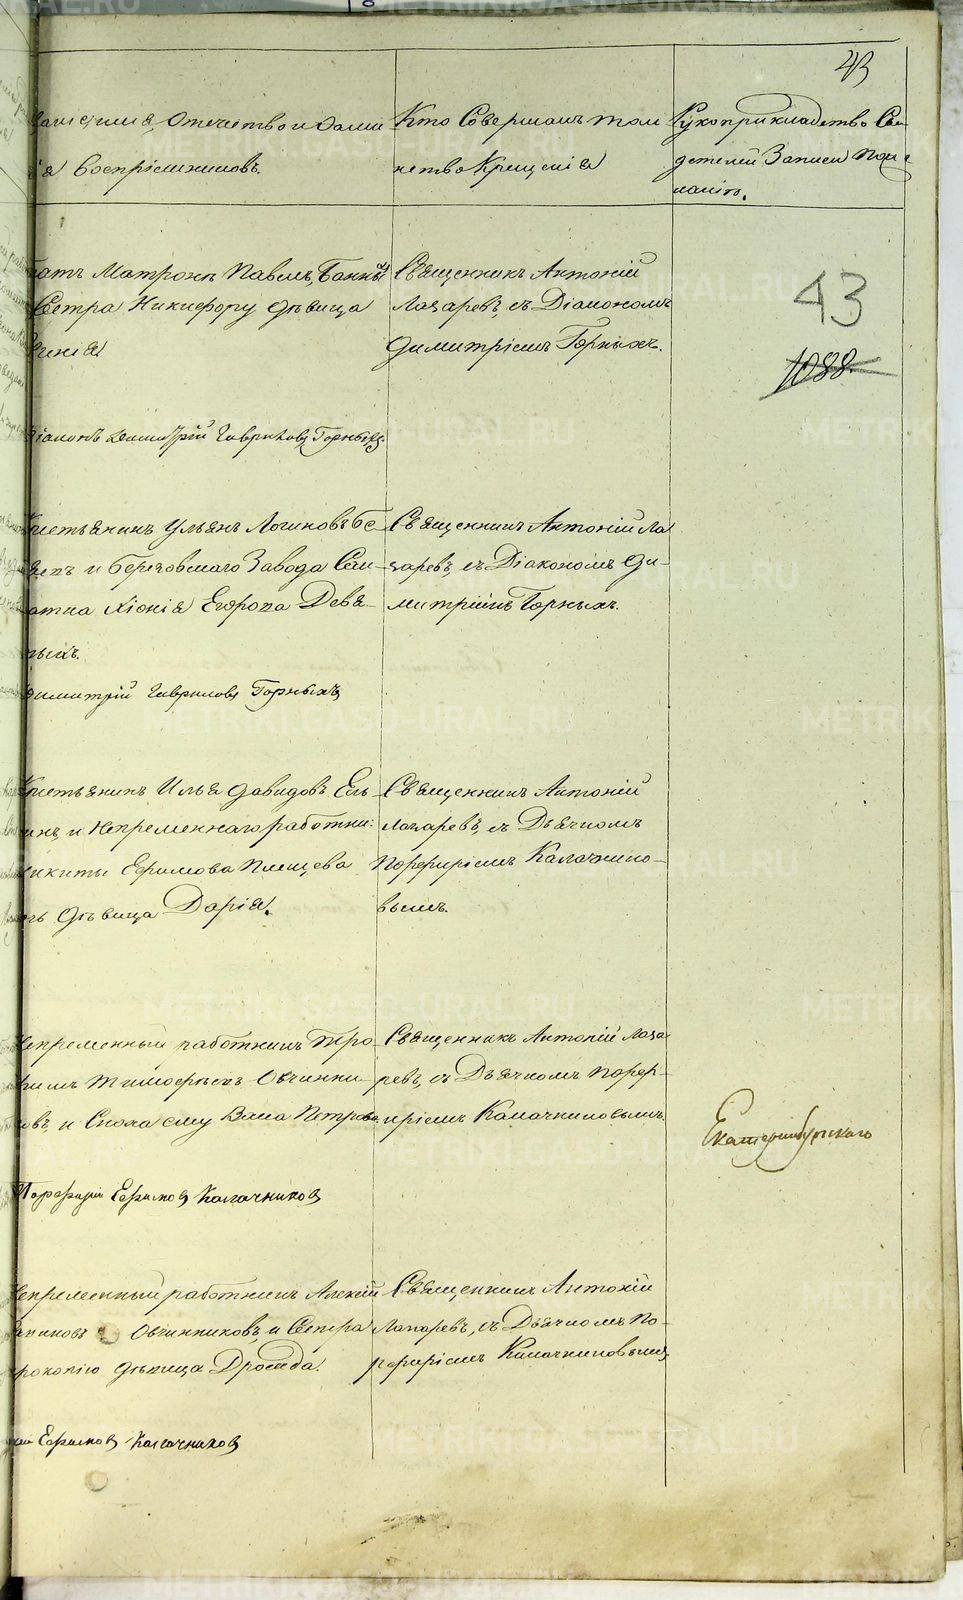 43
Званіе, имя, отечество и фами-
лія воспріемниковъ.
Кто совершалъ таин-
ство крещенія
Рукоприкладство сви-
детелей записи по же-
ланію.
братъ Матроны Павелъ, Банны
Сестра Никифору дѣвица
Священникъ Антоній
Лазаревъ, съ Діакономъ
Димитріемъ Горныхъ.
43
1088.
Діаконъ Димитрій Гавриловъ Горныхъ
Крестьянинъ Ульянъ Логиновъ Бе-
и Березовскаго Завода Сол-
датка Хіонія Егорова Девя-
тыхъ.
Священникъ Антоній Ла-
заревъ, съ Діакономъ Ди-
митріемъ Горныхъ.
Димитрій Гавриловъ Горныхъ
Крестьянинъ Илья Давидовъ Ель-
кинъ, и Непременнаго работни:
Никиты Ефимова Плещева
дочь дѣвица Дарія.
Священникъ Антоній
Лазаревъ, съ Дьячкомъ
Порфиріемъ Калачнико-
вымъ.
Непременный работникъ Тро-
фимъ Тимофѣевъ Овчинни-
ковъ, и Сноха ему Васа Петрова.
Священникъ Антоній Лаза-
ревъ, съ Дьячкомъ Порфи-
ріемъ Калачниковымъ.
Екатеринбургскаго
Порфирій Ефимовъ Калачниковъ
Непременный работникъ Алексій
Овчинниковъ, и Сестра
Прокопію дѣвица Дросида.
Священникъ Антоній
Лазаревъ, съ Дьячкомъ По-
рфиріемъ Калачниковымъ
Ефимовъ Калачниковъ
METRIKI.GASO-URAL.RU